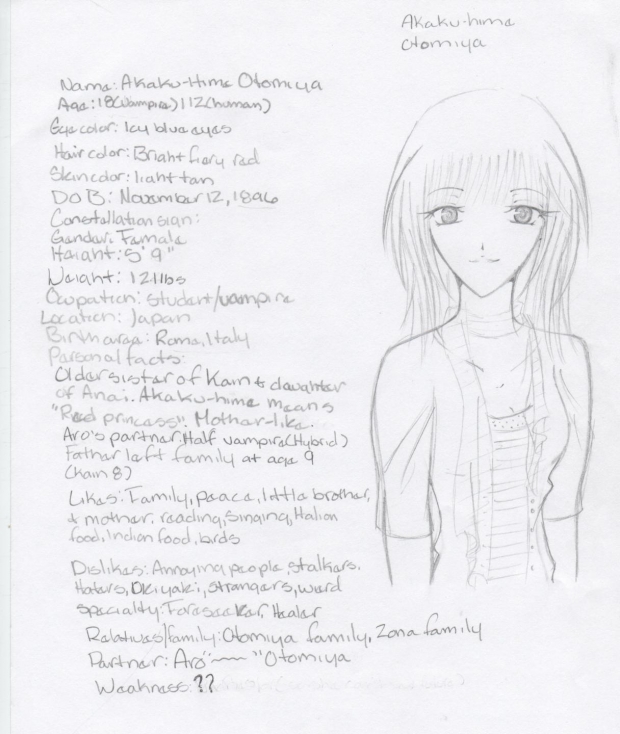 Akaku-hime
Otomiya
Name: Akaku-Hime Otomiya
Age: 18(Vampire) 112(human)
Eye color: Icy blue eyes
Hair color: Bright fiery red
Skin color: light tan
DoB: November 12, 1896
Constellation sign:
Gender: Female
Height: 5' 9"
Weight: 121lbs
Ocupation: student/vampire
Location: Japan
Birth area: Rome, Italy
Personal facts:
Older sister of Kain & daughter
of Anai. Akaku-hime means
"Red princess". Mother-like.
Aro's partner. Half vampire(Hybrid)
Father left family at age 9
(Kain 8)
Likes: Family, peace, little brother,
& mother. reading, singing, Italian
food, Indian food, birds
Dislikes: Annoying people, stalkers,
Haters, strangers,
speciality: Foreseeker, Healer
Relatives/family: Otomiya family, Zona family
Partner: Aro "~~~" Otomiya
Weakness: ??